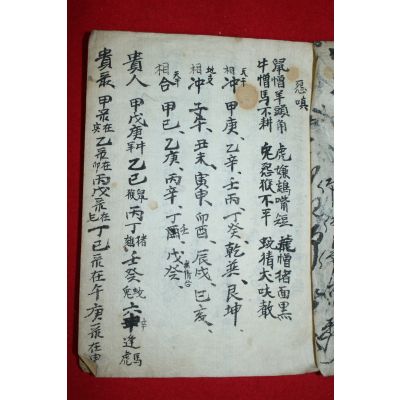 怨嗔
鼠憎羊頭角 虎嫌鷄嘴短 龍憎猪面黑
牛憎馬不耕 兔怨猴不平 蛇猜犬吠
天干相冲 甲庚、乙辛、壬丙、丁癸、乾巽、艮坤、
地支相冲 子午、丑未、寅申、卯酉、辰戌、巳亥、
天干相合 甲己、乙庚、丙辛、丁壬、戊癸、
貴人 甲戊庚牛羊 乙己鼠猴 丙丁猪鷄 壬癸蛇兔 六辛逢馬虎
貴祿 甲祿在寅 乙祿在卯 丙戊祿在巳 丁己祿在午 庚祿在申